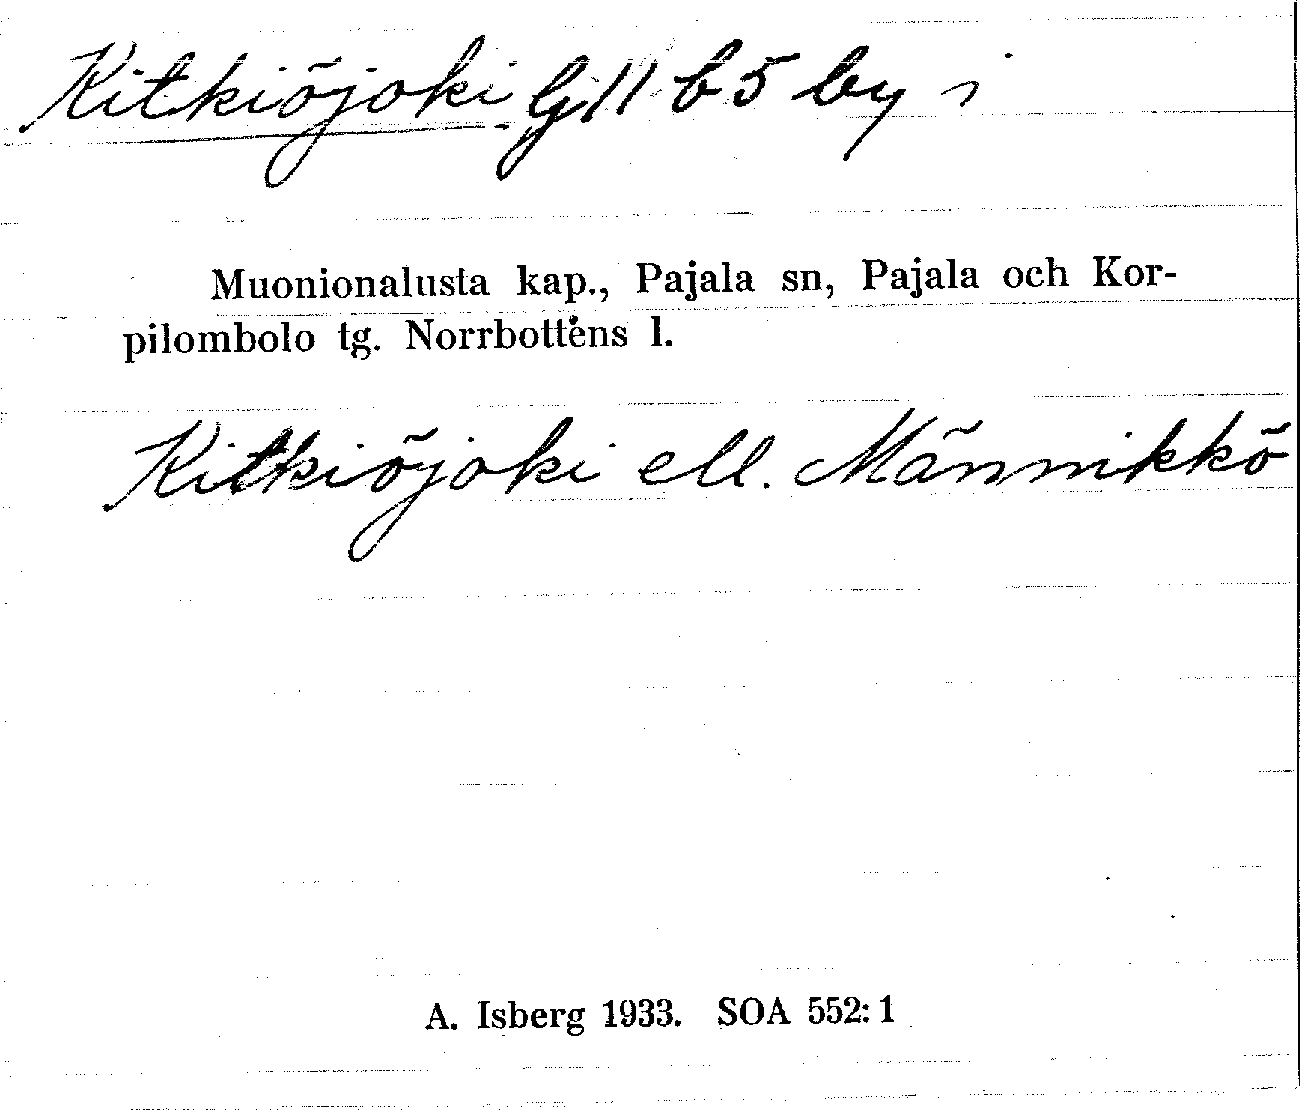 Kitkiöjoki G 11 b 5 by i
Muonionalusta kap., Pajala sn, Pajala och Kor-
pilombolo tg. Norrbottens l.
Kitkiöjoki ell. Männikkö
A. Isberg 1933. SOA 552:1